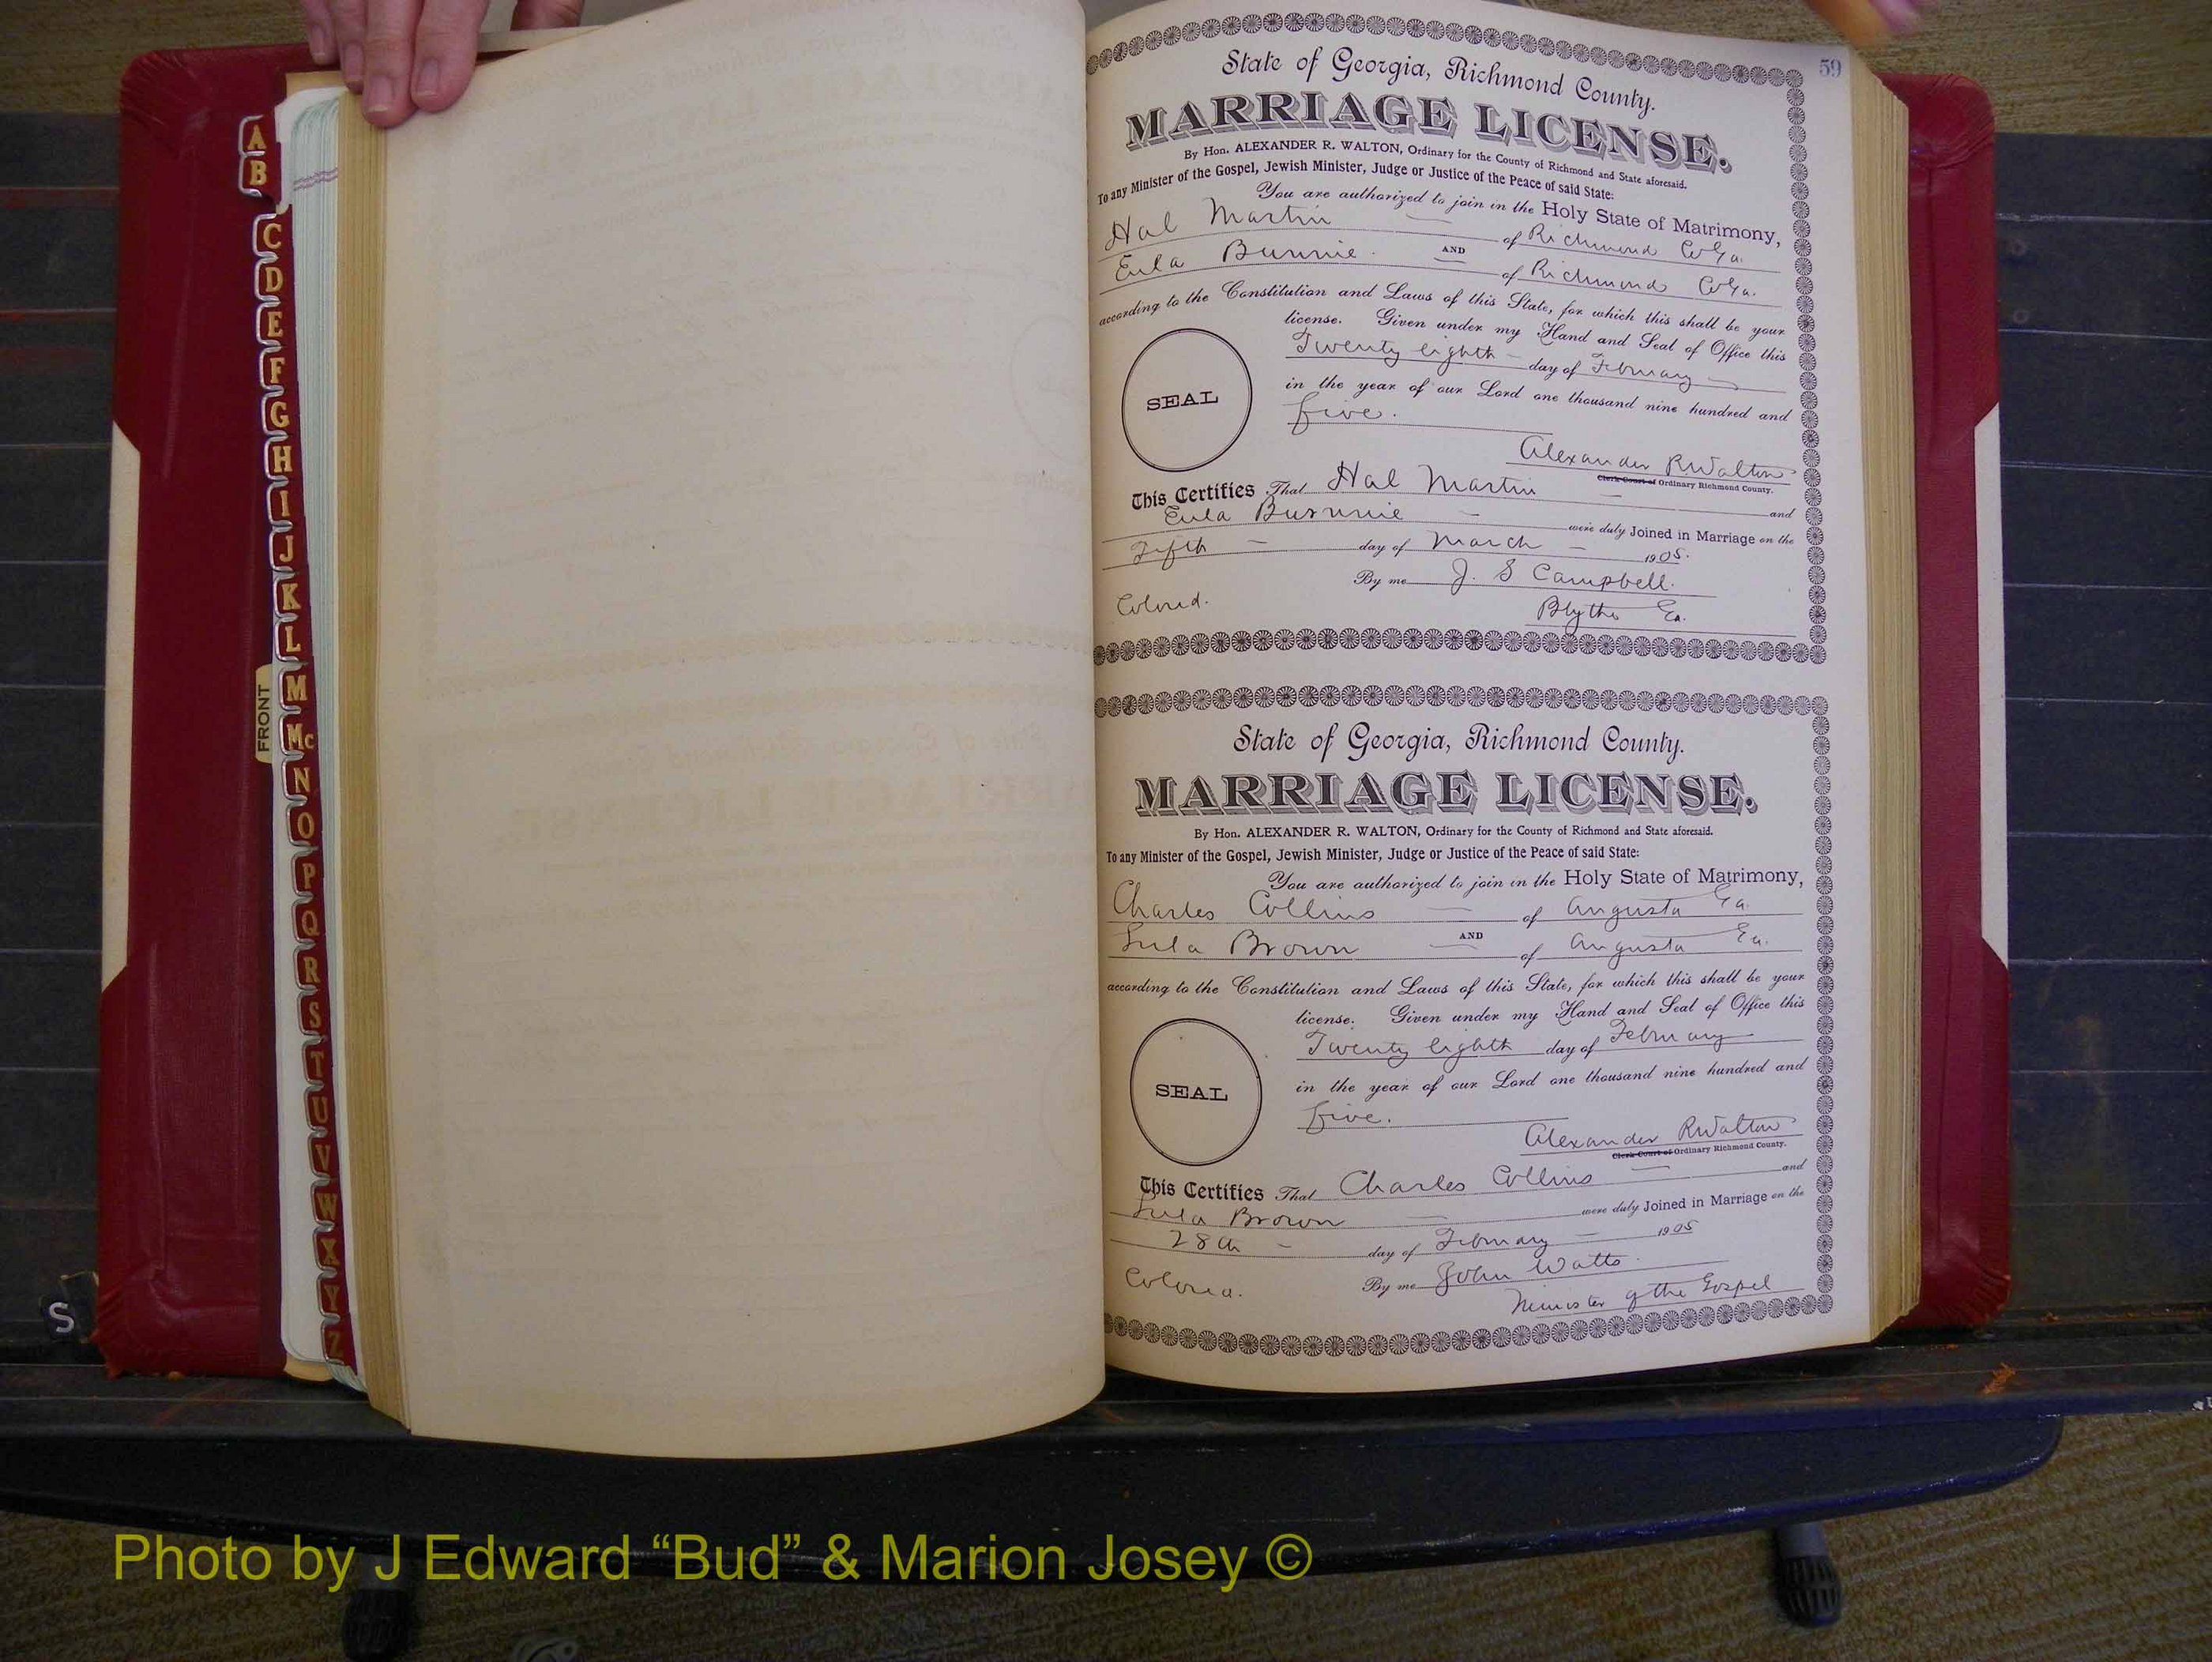 A
B
C
D
E
F
G
H
I
J
K
L
M
Mc
N
O
P
Q
R
S
T
U
V
W
X
Y
Z
FRONT
S
59
State of Georgia, Richmond County.
MARRIAGE LICENSE.
By Hon. ALEXANDER R. WALTON, Ordinary for the County of Richmond and State aforesaid.
To any Minister of the Gospel, Jewish Minister, Judge or Justice of the Peace of said State:
You are authorized to join in the Holy State of Matrimony,
Hal Martin of Richmond Co Ga.
AND
Eula Bunnie. of Richmond Co Ga.
according to the Constitution and Laws of this State, for which this shall be your
license. Given under my Hand and Seal of Office this
Twenty eighth day of February
in the year of our Lord one thousand nine hundred and
five.
SEAL
Alexander R Walton
Clerk Court of Ordinary Richmond County.
This Certifies That Hal Martin and
Eula Burnnie were duly Joined in Marriage on the
Fifth day of March 1905.
By me J. S Campbell.
Colored. Blythe Ga.
State of Georgia, Richmond County.
MARRIAGE LICENSE.
By Hon. ALEXANDER R. WALTON, Ordinary for the County of Richmond and State aforesaid.
To any Minister of the Gospel, Jewish Minister, Judge or Justice of the Peace of said State:
You are authorized to join in the Holy State of Matrimony,
Charles Collins of Augusta Ga.
AND
Lula Brown of Augusta Ga.
according to the Constitution and Laws of this State, for which this shall be your
license. Given under my Hand and Seal of Office this
Twenty eighth day of February
in the year of our Lord one thousand nine hundred and
five.
SEAL
Alexander R Walton
Clerk Court of Ordinary Richmond County.
This Certifies That Charles Collins and
Lula Brown were duly Joined in Marriage on the
28th day of February 1905
By me John Watts.
Colored. Minister of the Gospel
Photo by J Edward “Bud” & Marion Josey ©